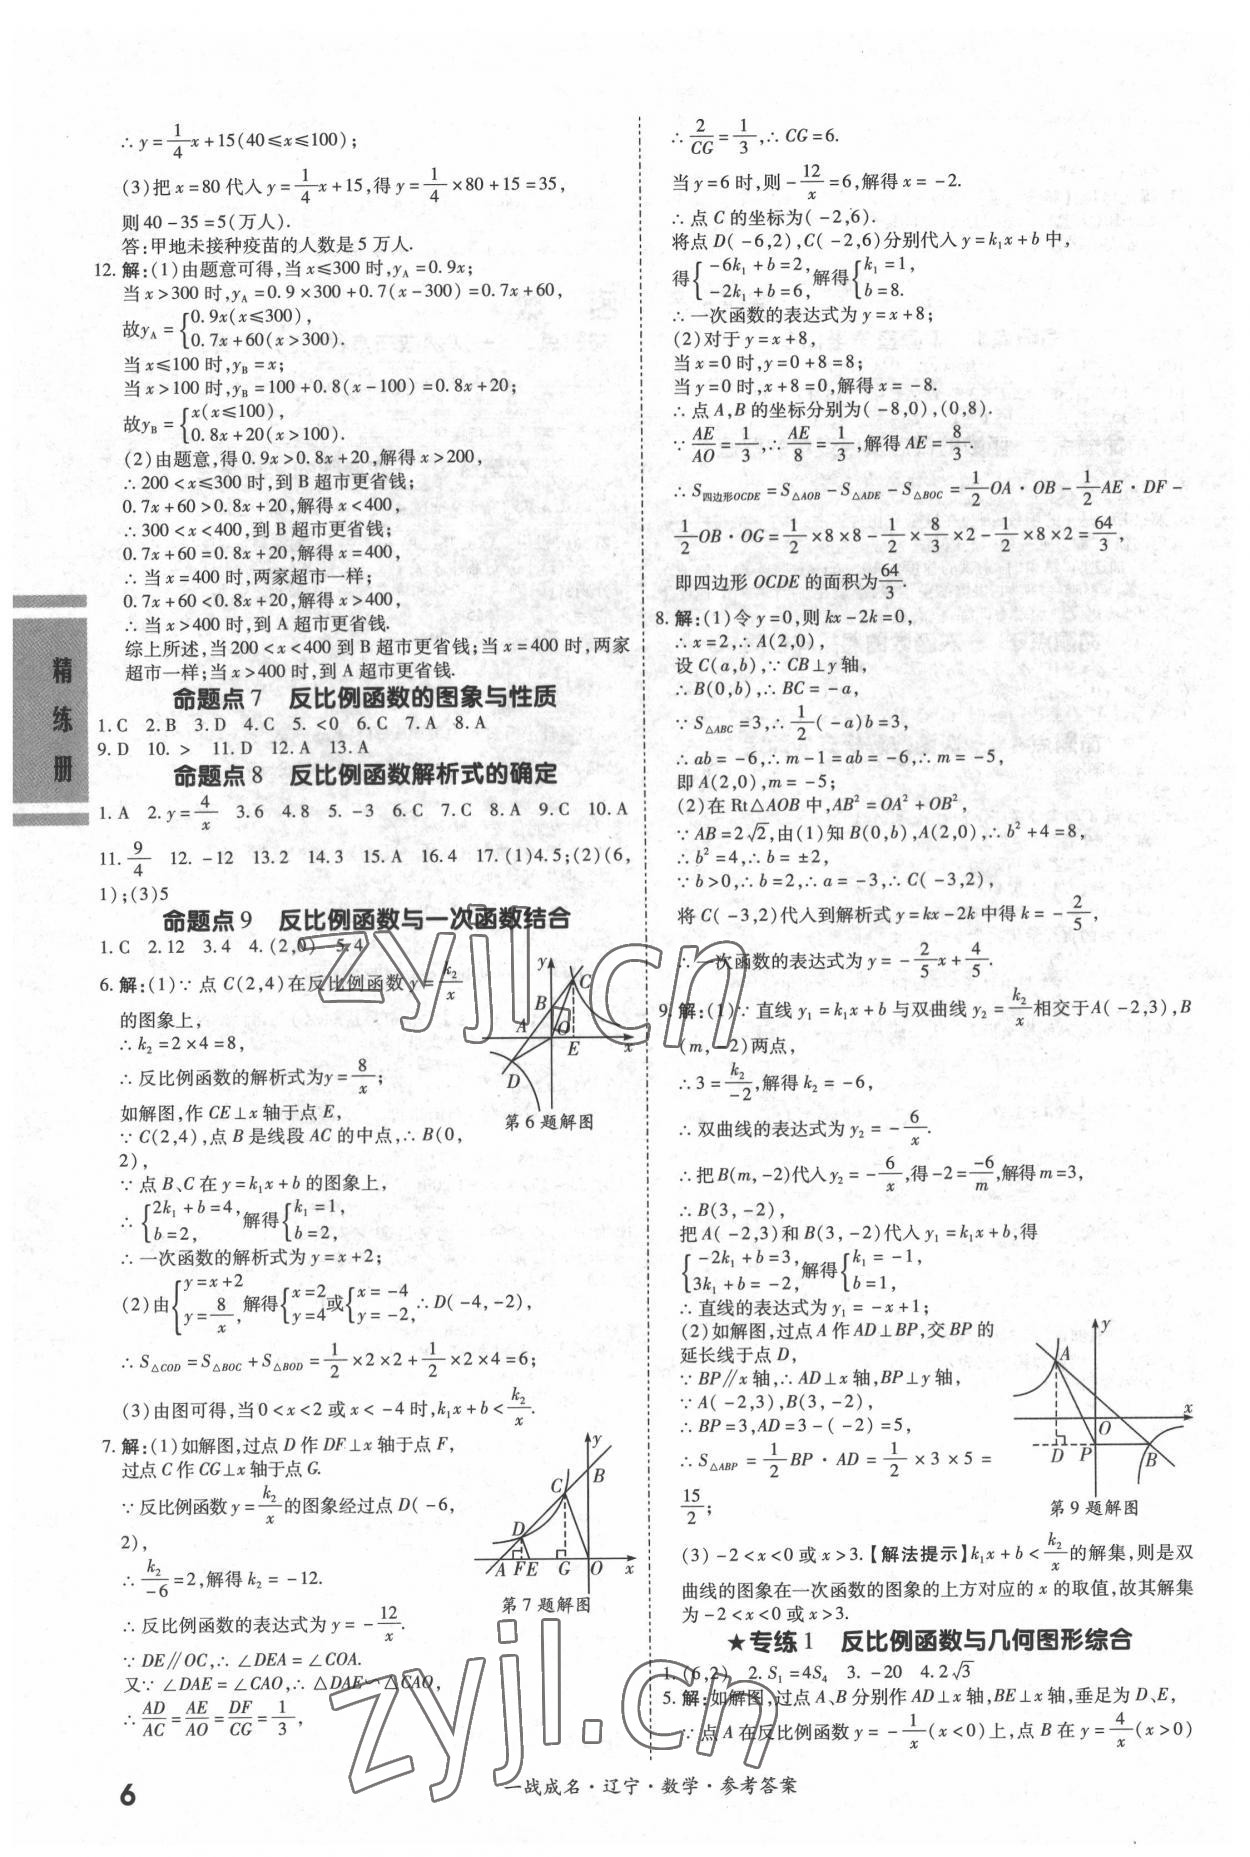 ∴ y=1/4x+15(40≤x≤100);
(3)把 x=80 代入 y=1/4x+15,得 y=1/4×80+15=35,
则 40-35=5(万人).
答:甲地未接种疫苗的人数是 5 万人.
12. 解:(1)由题意可得,当 x≤300 时,y_A=0.9x;
当 x>300 时,y_A=0.9×300+0.7(x-300)=0.7x+60,
故y_A={0.9x(x≤300),
0.7x+60(x>300).
当 x≤100 时,y_B=x;
当 x>100 时,y_B=100+0.8(x-100)=0.8x+20;
故y_B={x(x≤100),
0.8x+20(x>100).
(2)由题意,得 0.9x>0.8x+20,解得 x>200,
∴ 200<x≤300 时,到 B 超市更省钱;
0.7x+60>0.8x+20,解得 x<400,
∴ 300<x<400,到 B 超市更省钱;
0.7x+60=0.8x+20,解得 x=400,
∴ 当 x=400 时,两家超市一样;
0.7x+60<0.8x+20,解得 x>400,
∴ 当 x>400 时,到 A 超市更省钱.
综上所述,当 200<x<400 到 B 超市更省钱;当 x=400 时,两家
超市一样;当 x>400 时,到 A 超市更省钱.
命题点 7 反比例函数的图象与性质
1. C 2. B 3. D 4. C 5. <0 6. C 7. A 8. A
9. D 10. > 11. D 12. A 13. A
命题点 8 反比例函数解析式的确定
1. A 2. y=4/x 3. 6 4. 8 5. -3 6. C 7. C 8. A 9. C 10. A
11. 9/4 12. -12 13. 2 14. 3 15. A 16. 4 17. (1)4.5;(2)(6,
1);(3)5
命题点 9 反比例函数与一次函数结合
1. C 2. 12 3. 4 4. (2,0) 5. 4
6. 解:(1)∵ 点 C(2,4)在反比例函数 y=k₂/x
的图象上,
∴ k₂=2×4=8,
∴ 反比例函数的解析式为y=8/x;
如解图,作 CE⊥x 轴于点 E,
∵ C(2,4),点 B 是线段 AC 的中点,∴ B(0,
2),
∵ 点 B、C 在 y=k₁x+b 的图象上,
∴ {2k₁+b=4,
b=2, 解得{k₁=1,
b=2,
∴ 一次函数的解析式为 y=x+2;
(2)由{y=x+2
y=8/x, 解得{x=2
y=4或{x=-4
y=-2, ∴ D(-4,-2),
∴ S△COD=S△BOC+S△BOD=1/2×2×2+1/2×2×4=6;
(3)由图可得,当 0<x<2 或 x<-4 时,k₁x+b<k₂/x.
y
C
B
A
O
E
x
D
第 6 题解图
7. 解:(1)如解图,过点 D 作 DF⊥x 轴于点 F,
过点 C 作 CG⊥x 轴于点 G.
∵ 反比例函数 y=k₂/x的图象经过点 D(-6,
2),
∴ k₂/-6=2,解得 k₂=-12.
∴ 反比例函数的表达式为 y=-12/x.
∵ DE∥OC,∴ ∠DEA=∠COA.
又∵ ∠DAE=∠CAO,∴ △DAE∽△CAO,
∴ AD/AC=AE/AO=DF/CG=1/3,
y
B
C
D
A F E G O x
第 7 题解图
∴ 2/CG=1/3,∴ CG=6.
当 y=6 时,则-12/x=6,解得 x=-2.
∴ 点 C 的坐标为(-2,6).
将点 D(-6,2),C(-2,6)分别代入 y=k₁x+b 中,
得{-6k₁+b=2,
-2k₁+b=6, 解得{k₁=1,
b=8.
∴ 一次函数的表达式为 y=x+8;
(2)对于 y=x+8,
当 x=0 时,y=0+8=8;
当 y=0 时,x+8=0,解得 x=-8.
∴ 点 A,B 的坐标分别为(-8,0),(0,8).
∵ AE/AO=1/3,∴ AE/8=1/3,解得 AE=8/3.
∴ S四边形OCDE=S△AOB-S△ADE-S△BOC=1/2OA·OB-1/2AE·DF-
1/2OB·OG=1/2×8×8-1/2×8/3×2-1/2×8×2=64/3,
即四边形 OCDE 的面积为64/3.
8. 解:(1)令 y=0,则 kx-2k=0,
∴ x=2,∴ A(2,0),
设 C(a,b),∵ CB⊥y 轴,
∴ B(0,b),∴ BC=-a,
∵ S△ABC=3,∴ 1/2(-a)b=3,
∴ ab=-6,∴ m-1=ab=-6,∴ m=-5,
即 A(2,0),m=-5;
(2)在 Rt△AOB 中,AB²=OA²+OB²,
∵ AB=2√2,由(1)知 B(0,b),A(2,0),∴ b²+4=8,
∴ b²=4,∴ b=±2,
∵ b>0,∴ b=2,∴ a=-3,∴ C(-3,2),
将 C(-3,2)代入到解析式 y=kx-2k 中得 k=-2/5,
∴ 一次函数的表达式为 y=-2/5x+4/5.
9. 解:(1)∵ 直线 y₁=k₁x+b 与双曲线 y₂=k₂/x相交于 A(-2,3),B
(m,-2)两点,
∴ 3=k₂/-2,解得 k₂=-6,
∴ 双曲线的表达式为 y₂=-6/x.
∴ 把 B(m,-2)代入 y₂=-6/x,得-2=-6/m,解得 m=3,
∴ B(3,-2),
把 A(-2,3)和 B(3,-2)代入 y₁=k₁x+b,得
{-2k₁+b=3,
3k₁+b=-2, 解得{k₁=-1,
b=1,
∴ 直线的表达式为 y₁=-x+1;
(2)如解图,过点 A 作 AD⊥BP,交 BP 的
延长线于点 D,
∵ BP∥x 轴,∴ AD⊥x 轴,BP⊥y 轴,
∵ A(-2,3),B(3,-2),
∴ BP=3,AD=3-(-2)=5,
∴ S△ABP=1/2BP·AD=1/2×3×5=
15/2;
y
A
x
O
D P B
第 9 题解图
(3)-2<x<0 或 x>3.【解法提示】k₁x+b<k₂/x的解集,则是双
曲线的图象在一次函数的图象的上方对应的 x 的取值,故其解集
为-2<x<0 或 x>3.
★专练 1 反比例函数与几何图形综合
1. (6,2) 2. S₁=4S₄ 3. -20 4. 2√3
5. 解:如解图,过点 A、B 分别作 AD⊥x 轴,BE⊥x 轴,垂足为 D、E,
∵ 点 A 在反比例函数 y=-1/x(x<0)上,点 B 在 y=4/x(x>0)
精练册
6
一战成名·辽宁·数学·参考答案
zyjl.cn
zyjl.cn